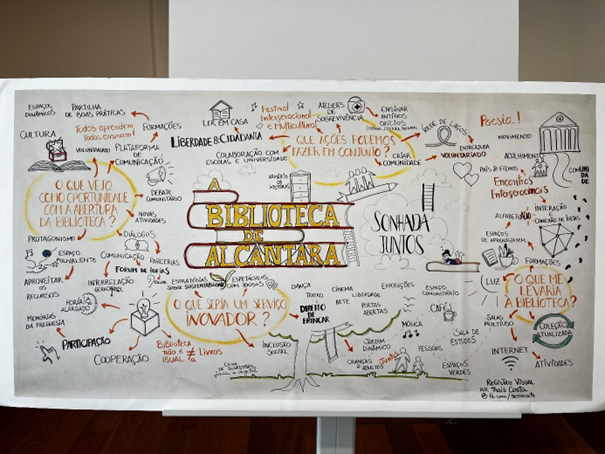 ESPAÇOS
DINÂMICOS
PARTILHA
DE BOAS PRÁTICAS
CULTURA
Todos aprendem,
Todos ensinam!
FORMAÇÕES
VOLUNTARIADO
PLATAFORMA
DE
COMUNICAÇÃO
O QUE VEJO
COMO OPORTUNIDADE
COM A ABERTURA
DA BIBLIOTECA?
DEBATE
COMUNITÁRIO
NOVAS
ATIVIDADES
DIÁLOGOS
PROTAGONISMO
ESPAÇO
POLIVALENTE
COMUNICAÇÃO
PARCERIAS
FORUM DE IDEIAS
APROVEITAR
OS
RECURSOS
INTERRELAÇÃO
GERACIONAL
HORÁRIO
ALARGADO
MEMÓRIAS
DA FREGUESIA
PARTICIPAÇÃO
COOPERAÇÃO
LER EM CASA
LIBERDADE & CIDADANIA
Festival
Intergeracional
e Multicultural
ATELIERS DE
SOBREVIVÊNCIA
ENSINAR
ANTIGOS
OFÍCIOS
COLABORAÇÃO COM
ESCOLAS E UNIVERSIDADE
QUE AÇÕES PODEMOS
FAZER EM CONJUNTO?
CRIAR
COMUNIDADE
REDE DE LAÇOS
ENTREAJUDA
VOLUNTARIADO
A
BIBLIOTECA
DE
ALCÂNTARA
SONHADA
JUNTOS
Poesia!
MOVIMENTO
ACOLHIMENTO
PAIS & FILHOS
COMUNIDADE
Encontros
Intergeracionais
ALFABETIZAÇÃO
INTERAÇÃO
E
CONEXÃO DE IDEIAS
ESPAÇOS
DE APRENDIZAGEM
FORMAÇÕES
LUZ
O QUE ME
LEVARIA
À BIBLIOTECA?
SALAS
MULTIUSO
COLEÇÃO
ATUALIZADA
INTERNET
ATIVIDADES
ESTRATÉGIAS
SOBRE SUSTENTABILIDADE
ESPETÁCULOS
COM IDOSOS
O QUE SERIA UM SERVIÇO
INOVADOR?
Biblioteca
não é ≠
IGUAL a Livros
INCLUSÃO
SOCIAL
DANÇA
TEATRO
CINEMA
LIBERDADE
EXPOSIÇÕES
DIREITO
DE
BRINCAR
BEBÉ
PORTAS
ABERTAS
ESPAÇO
COMUNITÁRIO
CAFÉ
MÚSICA
JARDIM
DINÂMICO
PESSOAS
SALA DE
ESTUDOS
CRIANÇAS
& ADULTOS
Juntos
ESPAÇOS
VERDES
REGISTRO VISUAL
POR Thais Costa